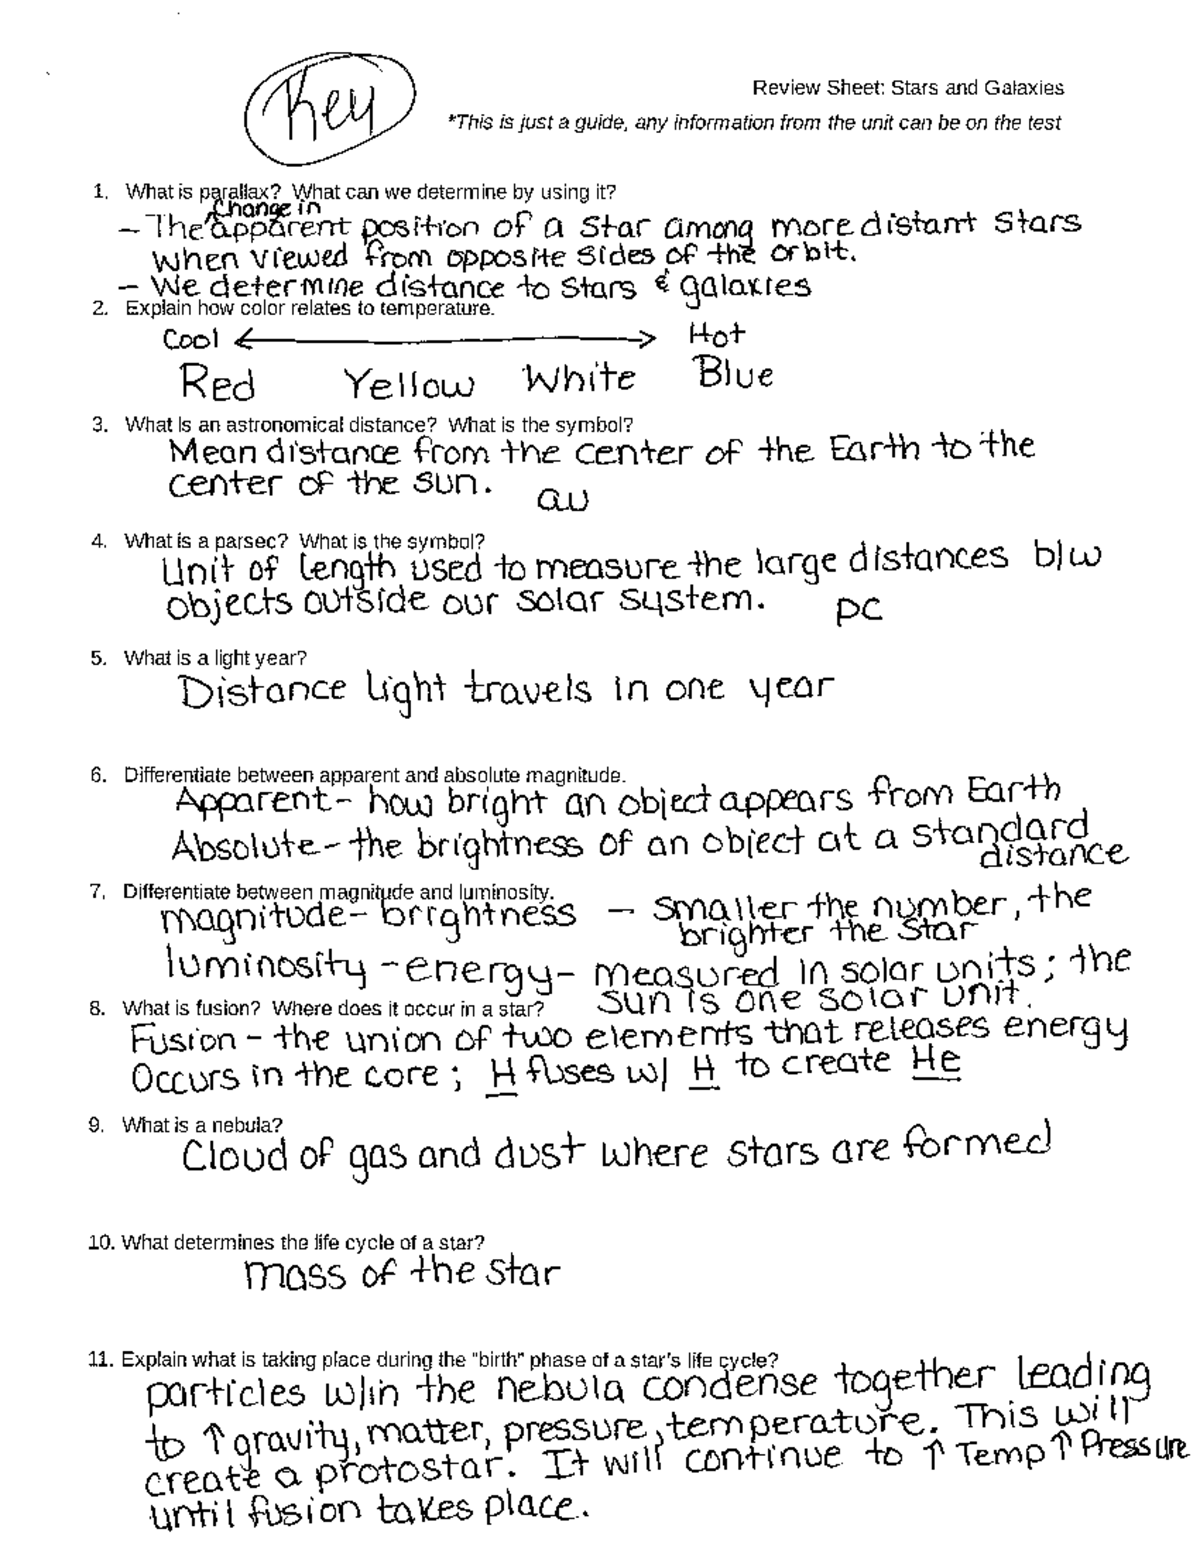 Key
Review Sheet: Stars and Galaxies
*This is just a guide, any information from the unit can be on the test
1. What is parallax? What can we determine by using it?
change in
- The apparent position of a star among more distant stars
when viewed from opposite sides of the orbit.
- We determine distance to stars & galaxies
2. Explain how color relates to temperature.
Cool Hot
Red Yellow White Blue
3. What is an astronomical distance? What is the symbol?
Mean distance from the center of the Earth to the
center of the sun. au
4. What is a parsec? What is the symbol?
Unit of length used to measure the large distances b/w
objects outside our solar system. pc
5. What is a light year?
Distance light travels in one year
6. Differentiate between apparent and absolute magnitude.
Apparent - how bright an object appears from Earth
Absolute - the brightness of an object at a standard
distance
7. Differentiate between magnitude and luminosity.
magnitude - brightness - smaller the number, the
brighter the star
luminosity - energy - measured in solar units; the
sun is one solar unit.
8. What is fusion? Where does it occur in a star?
Fusion - the union of two elements that releases energy
Occurs in the core; H fuses w/ H to create He
9. What is a nebula?
Cloud of gas and dust where stars are formed
10. What determines the life cycle of a star?
mass of the star
11. Explain what is taking place during the "birth" phase of a star's life cycle?
particles w/in the nebula condense together leading
to ↑ gravity, matter, pressure, temperature. This will
create a protostar. It will continue to ↑ Temp ↑ Pressure
until fusion takes place.